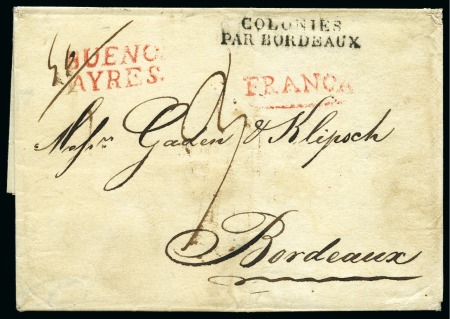 COLONIES
PAR BORDEAUX
BUENOS
AYRES.
FRANCA
Messrs Gaden & Klipsch
Bordeaux